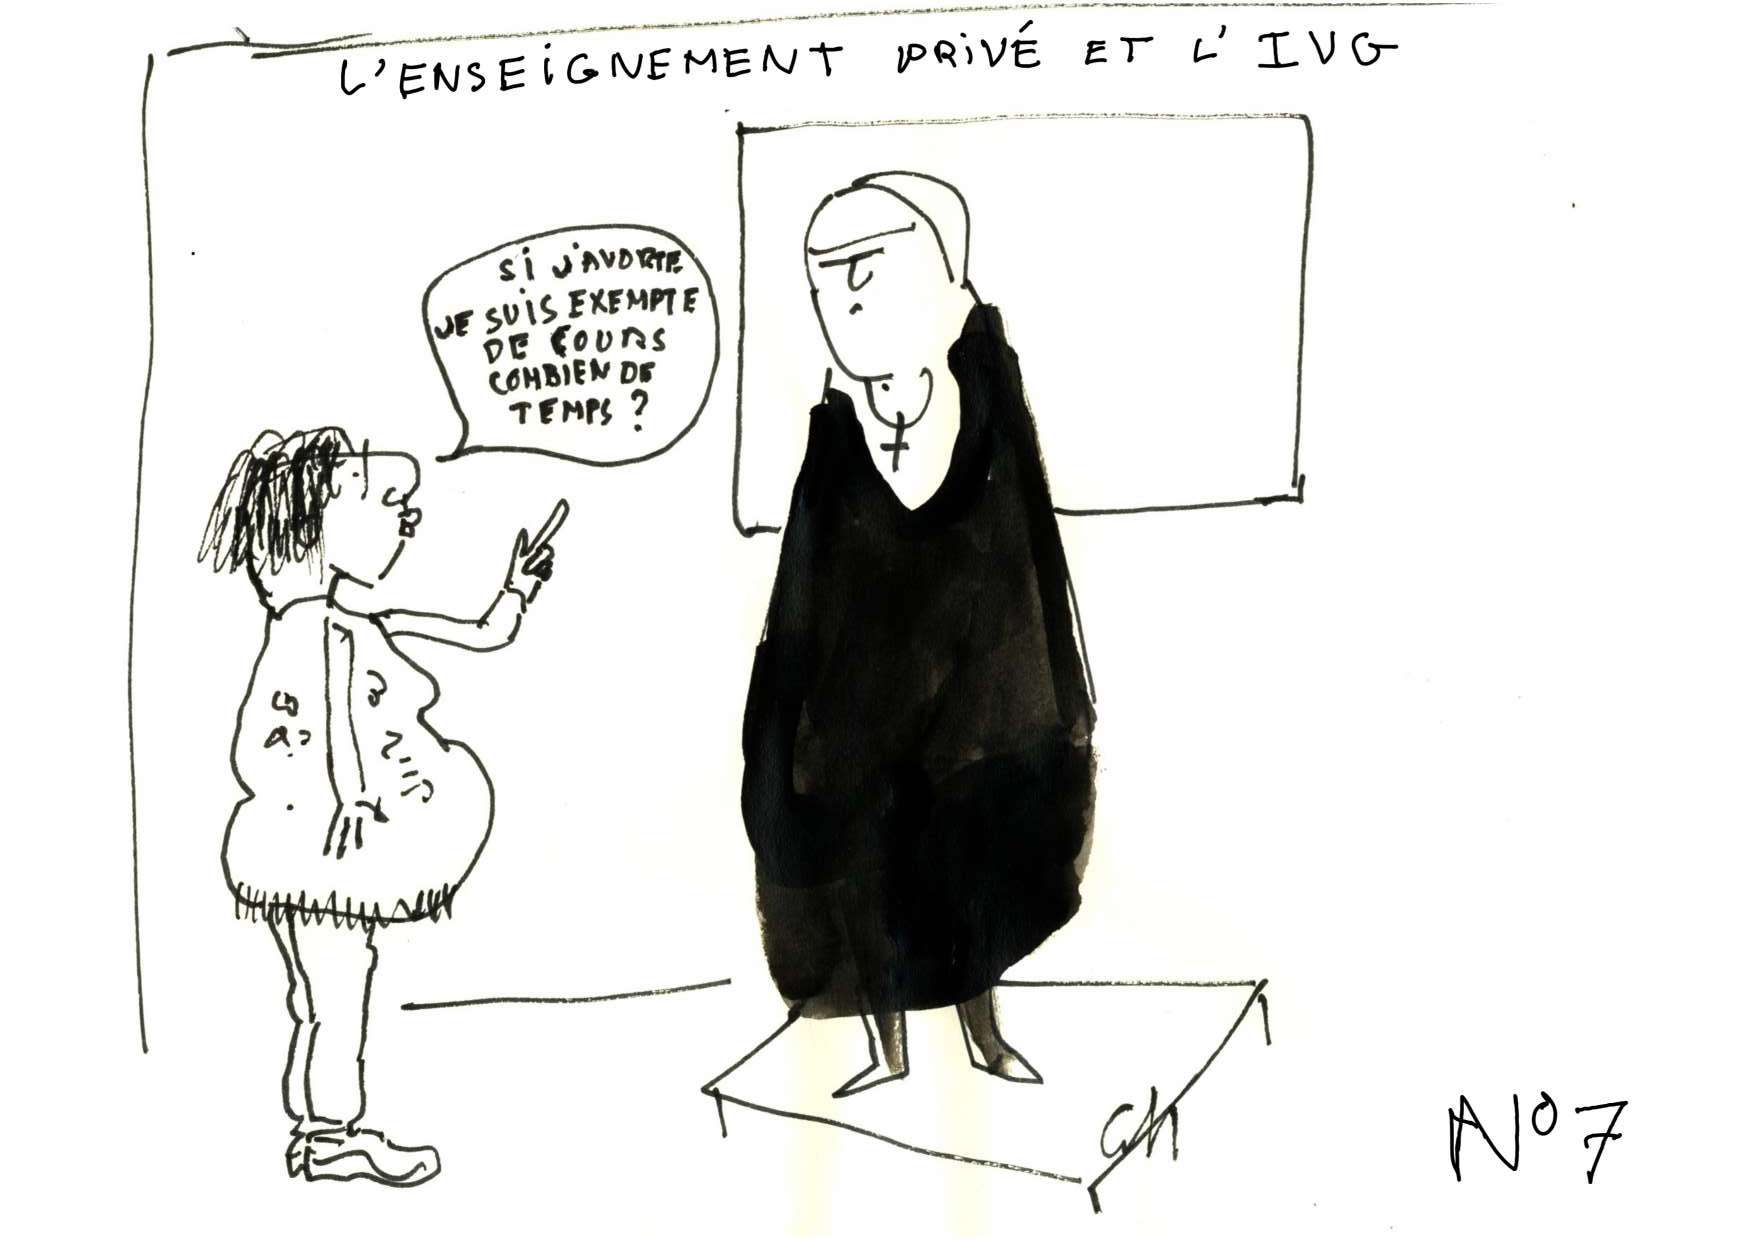 L'ENSEIGNEMENT PRIVÉ ET L'IVG
SI J'AVORTE
JE SUIS EXEMPTE
DE COURS
COMBIEN DE
TEMPS ?
Ch
No 7